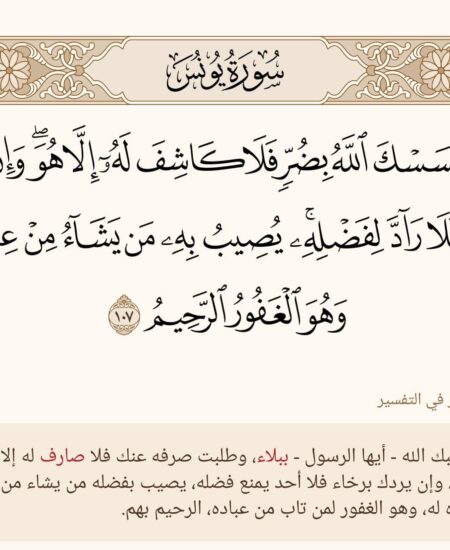 سُورَةُ يُونُسَ
سَسۡكَ ٱللَّهُ بِضُرّٖ فَلَا كَاشِفَ لَهُۥٓ إِلَّا هُوَۖ وَإِن
لَا رَآدَّ لِفَضۡلِهِۦۚ يُصِيبُ بِهِۦ مَن يَشَآءُ مِنۡ عِ
وَهُوَ ٱلۡغَفُورُ ٱلرَّحِيمُ ١٠٧
ر في التفسير
بك الله - أيها الرسول - ببلاء، وطلبت صرفه عنك فلا صارف له إلا
، وإن يردك برخاء فلا أحد يمنع فضله، يصيب بفضله من يشاء من
ه له، وهو الغفور لمن تاب من عباده، الرحيم بهم.